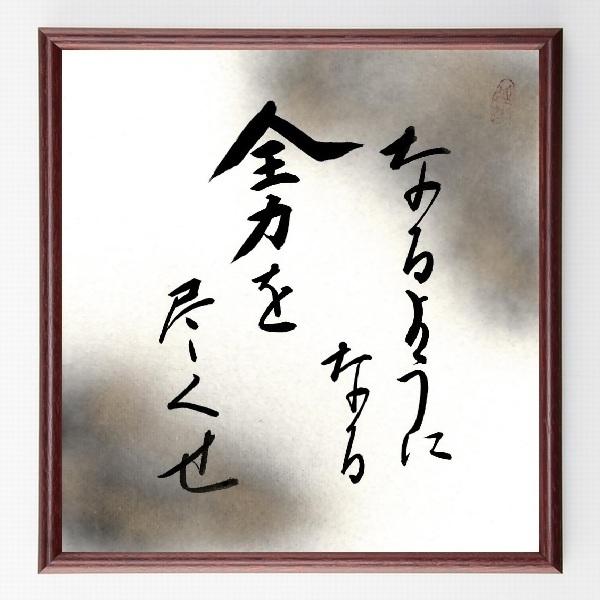 なるように
なる
全力を
尽くせ